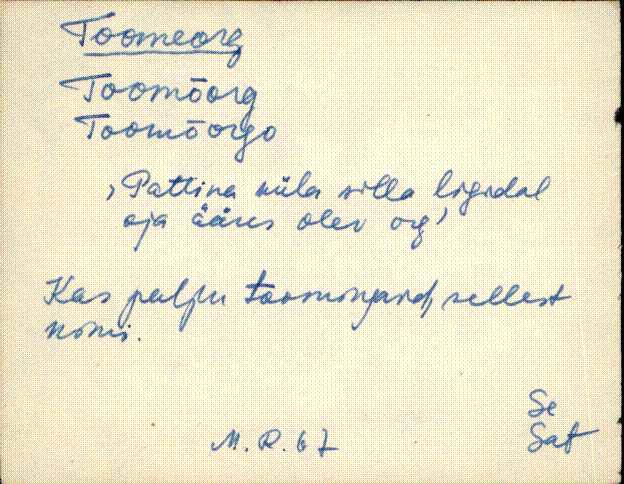 Toomeorg
Toomõorg
Toomõorgo
, Pattina küla silla ligidal
oja ääres olev org'
Kas palju toominjand, sellest
nimi.
Se
M. R. 67 Sat